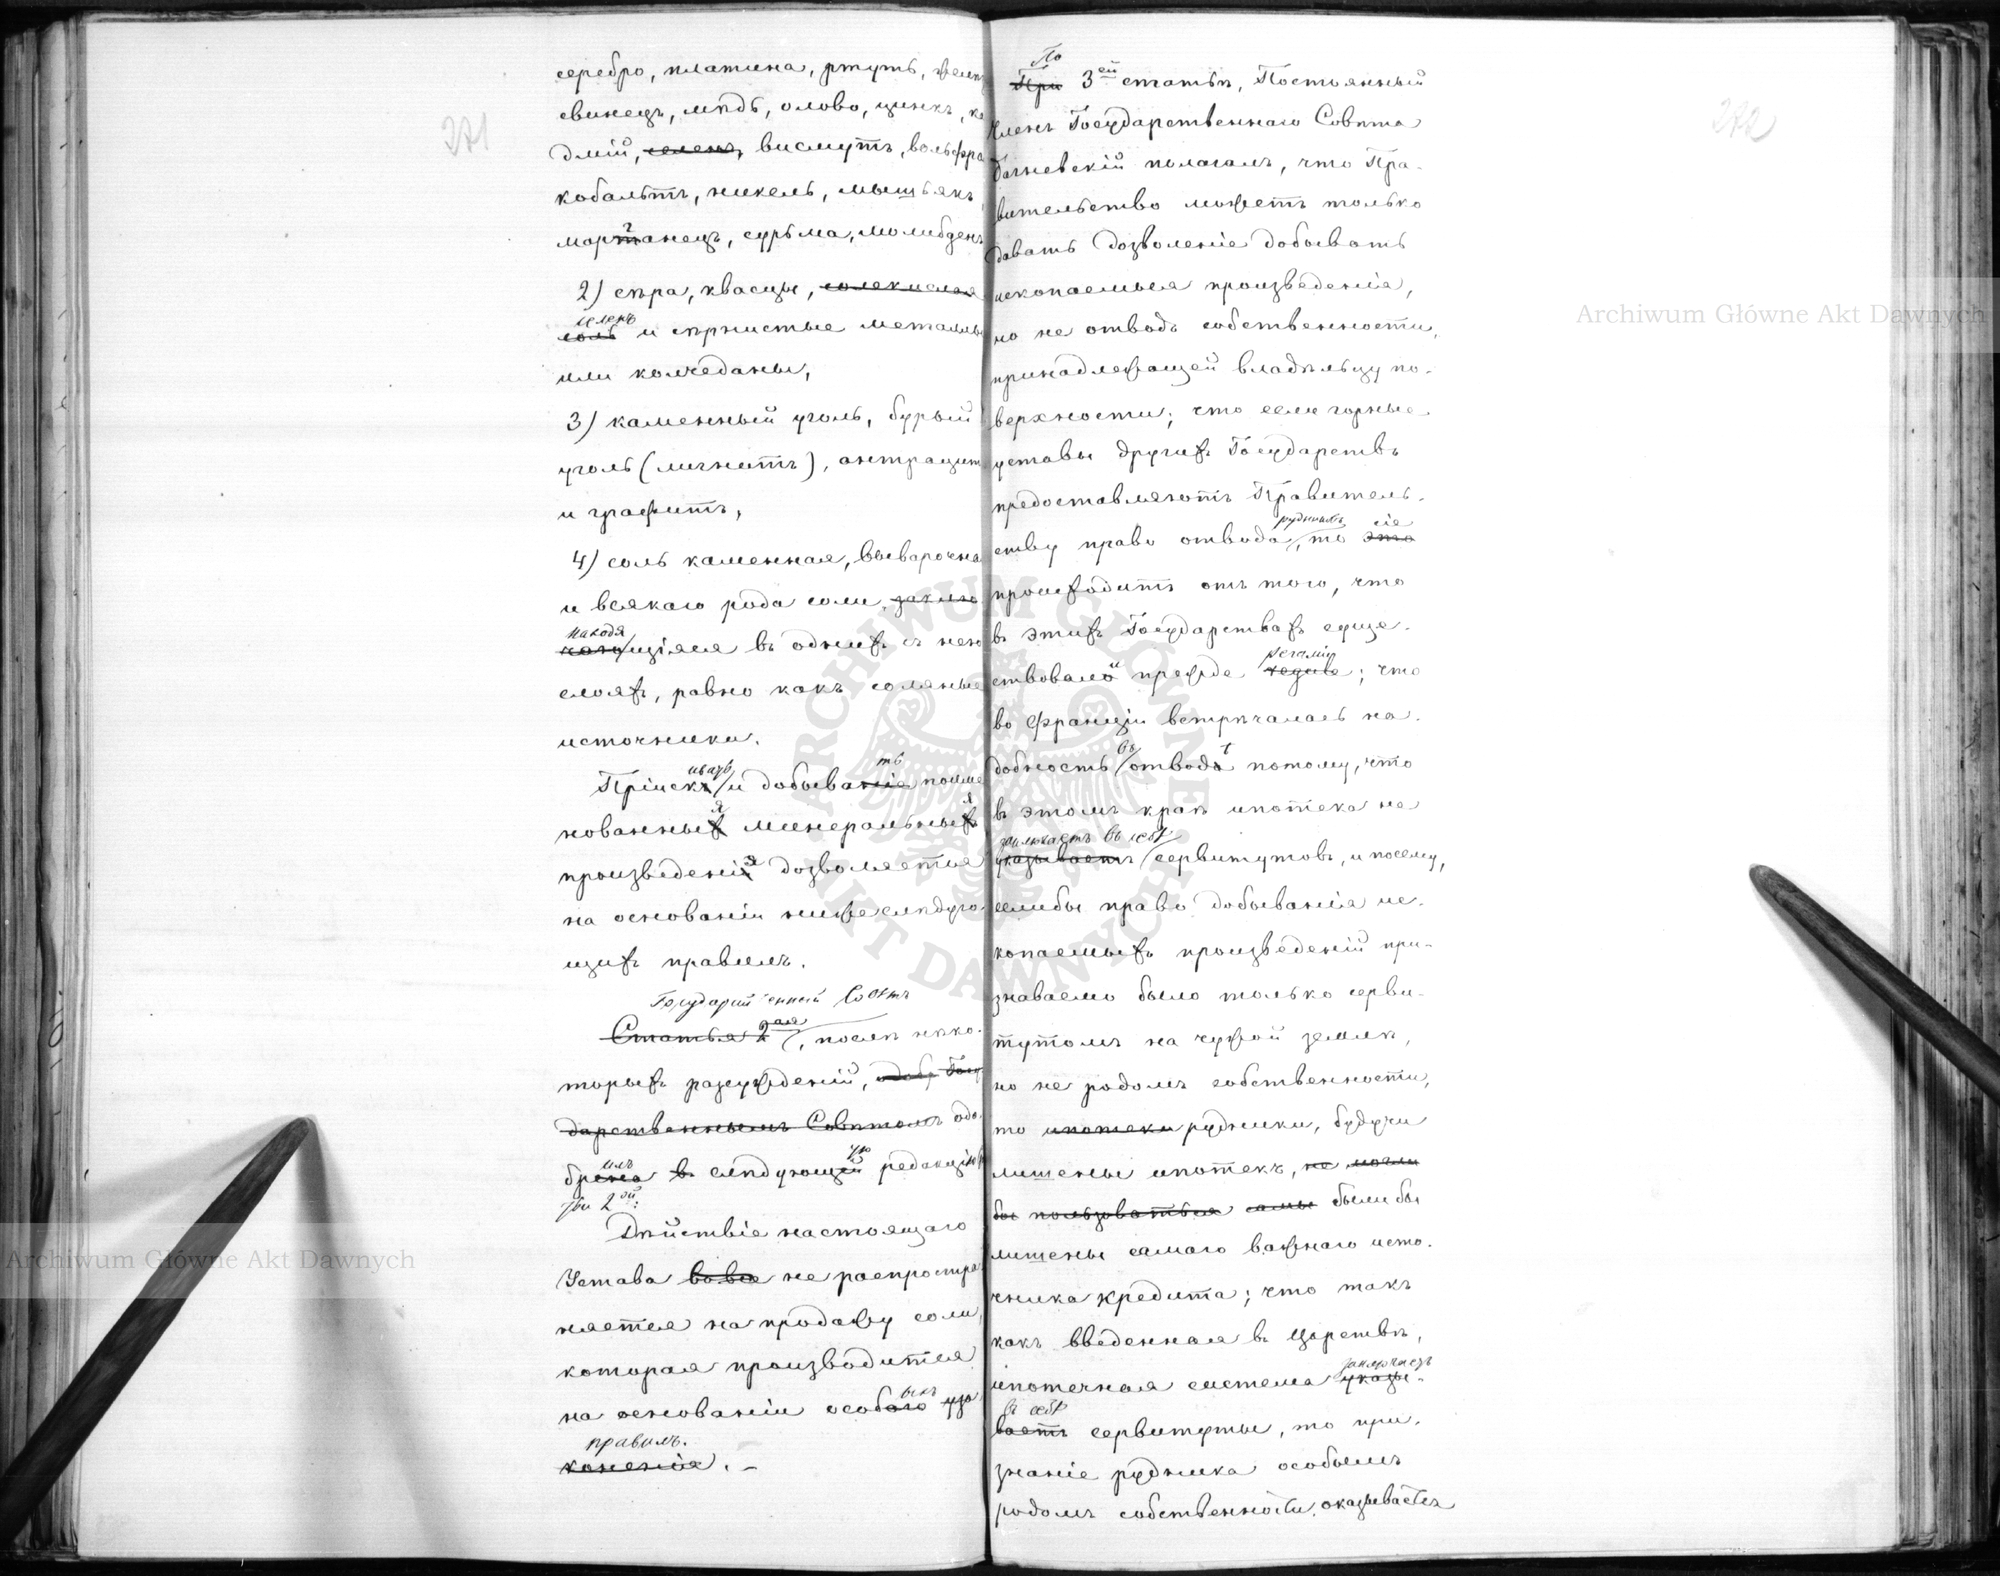 271
серебро, платина, ртуть, желѣз
свинецъ, мѣдь, олово, цинкъ, ка
дмій, селенъ, висмутъ, вольфра
кобальтъ, никель, мышьякъ,
марганецъ, сурьма, молибденъ
2) сѣра, квасцы, солекислая
селенъ
соль и сѣрнистые металлы
или колчеданы,
3) каменный уголь, бурый
уголь (лигнитъ), антрацитъ
и графитъ,
4) соль каменная, выварочна
и всякаго рода соли, заклю
находя
чающіяся въ однихъ съ нею
слояхъ, равно какъ соляные
источники.
ивать ть
Пріискъ и добываніе поиме
я я
нованныхъ минеральныхъ
произведенія дозволяется
на основаніи нижеслѣдую
щихъ правилъ.
Государственный Совѣтъ
Статья 2ая, послѣ нѣко-
торыхъ разсужденій, одобр Госу
дарственнымъ Совѣтомъ одо-
илъ ую
брена въ слѣдующей редакцію
2ой:
Дѣйствіе настоящаго
Устава вовсе не распростра
няется на продажу соли,
которая производится
ыхъ
на основаніи особаго узо
правилъ.
коненія. –
272
По
При 3ей статьѣ, Постоянный
Членъ Государственнаго Совѣта
полагалъ, что Пра-
вительство можетъ только
давать дозволеніе добывать
ископаемыя произведенія,
но не отводъ собственности,
принадлежащей владѣльцу по-
верхности; что если горные
уставы другихъ Государствъ
предоставляютъ Правитель-
рудниковъ сіе
ству право отвода, то это
происходитъ отъ того, что
въ этихъ Государствахъ суще-
регаліи
ствовали прежде ; что
во Франціи встрѣчалась на-
въ ѣ
добность отвода потому, что
въ этомъ краѣ ипотека не
заключаетъ въ себѣ
указываетъ сервитутовъ, и посему,
еслибы право добыванія ис-
копаемыхъ произведеній при-
знаваемо было только серви-
тутомъ на чужой землѣ,
но не родомъ собственности,
то ипотеки рудники, будучи
лишены ипотекъ, не могли
бы пользоваться самы были бы
лишены самаго важнаго исто-
чника кредита; что такъ
какъ введенная въ Царствѣ,
заключаетъ
ипотечная система указы-
въ себѣ
ваетъ сервитуты, то при-
знаніе рудника особымъ
родомъ собственности, оказывается
Archiwum Główne Akt Dawnych
Archiwum Główne Akt Dawnych
ARCHIWUM GŁÓWNE AKT DAWNYCH